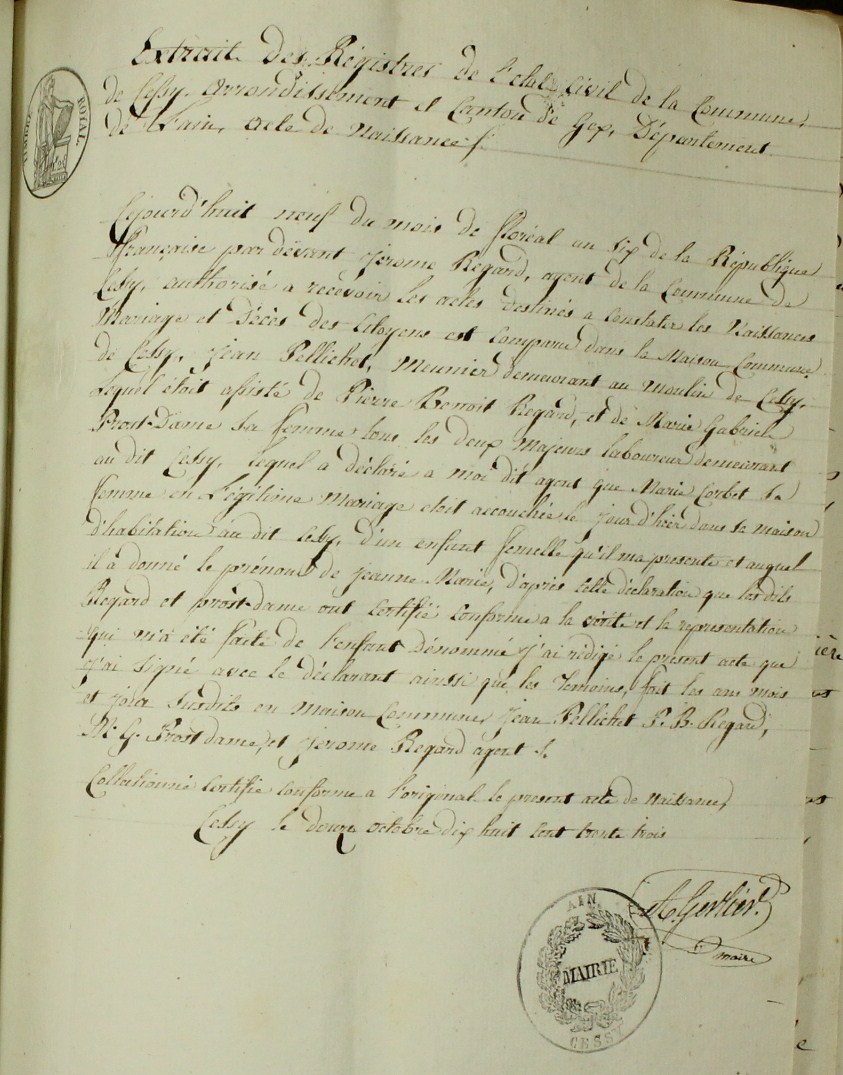 Extrait Des Régistres de l'etat Civil de la Commune,
de Cessy, Arrondissement et Canton de Gex, Département
de l'ain, acte de Naissance
TIMBRE ROYAL
Cejourd'huit neuf du mois de floréal an six de la République
française par dévant Jerome Regard, agent de la Commune de
Cessy, authorisé a recevoir les actes destinés a Constater les Naissances
Mariage et Décès des Citoyens est Comparu dans la Maison Commune
de Cessy, Jean Pellichet, Meunier demeurant au Moulin de Cessy,
Lequel étoit assisté de Pierre Benoit Regard, et de Marie Gabriel
Prost-Dame sa femme tous les deux Majeurs laboureur demeurant
au dit Cessy, lequel a déclaré a moi dit agent que Marie Corbet sa
femme en Légitime Mariage etoit accouchée le jour d'hier dans sa maison
d'habitation au dit Cessy, d'un enfant femelle qu'il ma presenté et auquel
il a donné le prénom de Jeanne Marie, d'après cette déclaration que les dits
Regard et prost-dame ont Certifié Conforme a la vérité et la représentation
qui m'a été faite de l'enfant Dénommé J'ai rédigé le present acte que
J'ai Signé avec le déclarant ainssi que les Temoins, fait les ans mois
et jour Susdits en Maison Commune, Jean Pellichet P. B. Regard,
M. G. Prost dame, et Jerome Regard agent
Collationné Certifié Conforme a l'original le present acte de Naissance,
Cessy le douze octobre dix huit cent trente trois
A. Gerlier.
maire
AIN
MAIRIE
CESSY